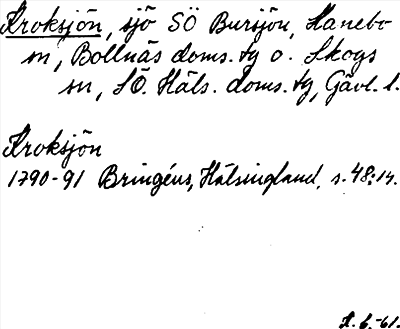 Kroksjön, sjö SÖ Bursjön, Hanebo
sn, Bollnäs doms. tg o. Skogs
sn, SÖ. Häls. doms. tg, Gävl. l.
Kroksjön
1790-91 Bringéus, Hälsingland, s. 48:14.
X. 6.-61.